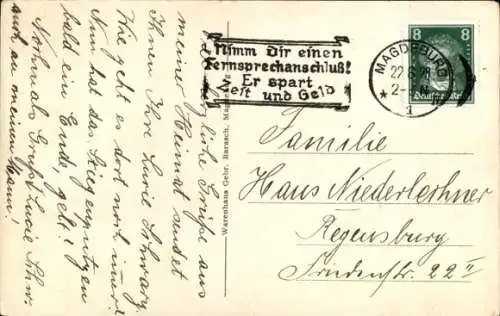 Herzliche Grüße aus
meiner Heimat sendet
Ihnen Ihre Lucie Schwarz.
Wie geht es dort noch immer?
Nun hat das Fliegenputzen
bald ein Ende, gelt?
Nochmals Gruß Lucie Schw.
auch an meinen Mann.
Warenhaus Gebr. Barasch,
Nimm Dir einen
Fernsprechanschluß!
Er spart
Zeit und Geld
MAGDEBURG
1
8 8
Deutsches Reich
Familie
Hans Niederlechner
Regensburg
Friedenstr. 22 II